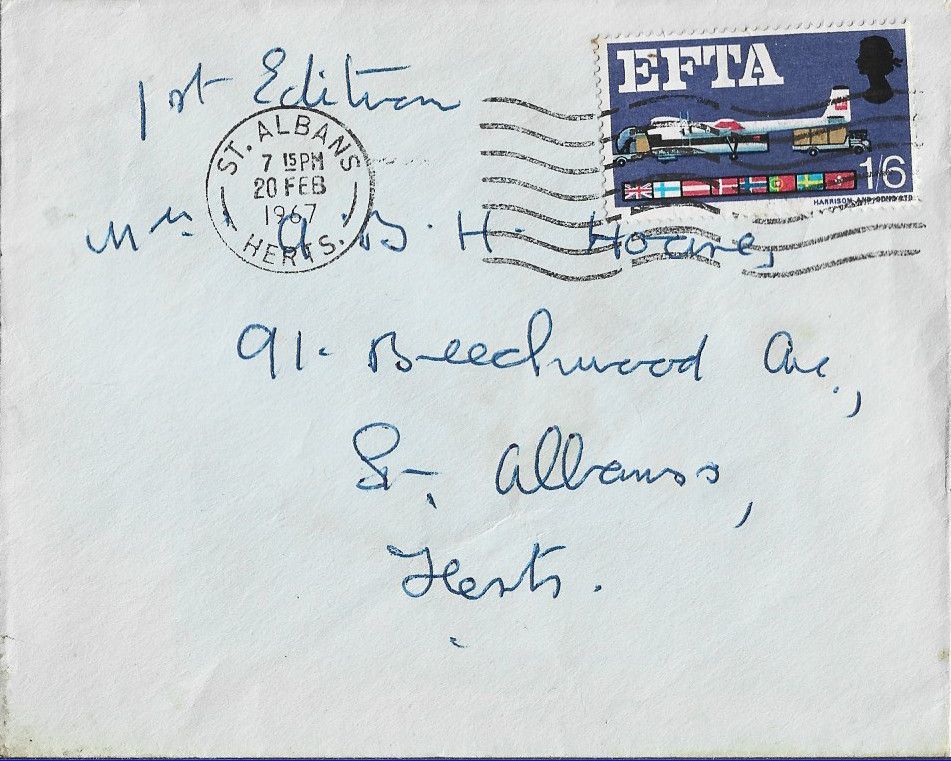 1st Edition
EFTA
1/6
HARRISON AND SONS LTD
ST. ALBANS
7 15PM
20 FEB
1967
HERTS.
Mrs A. B. H. Hoare,
91. Beechwood Ave.,
St. Albans,
Herts.